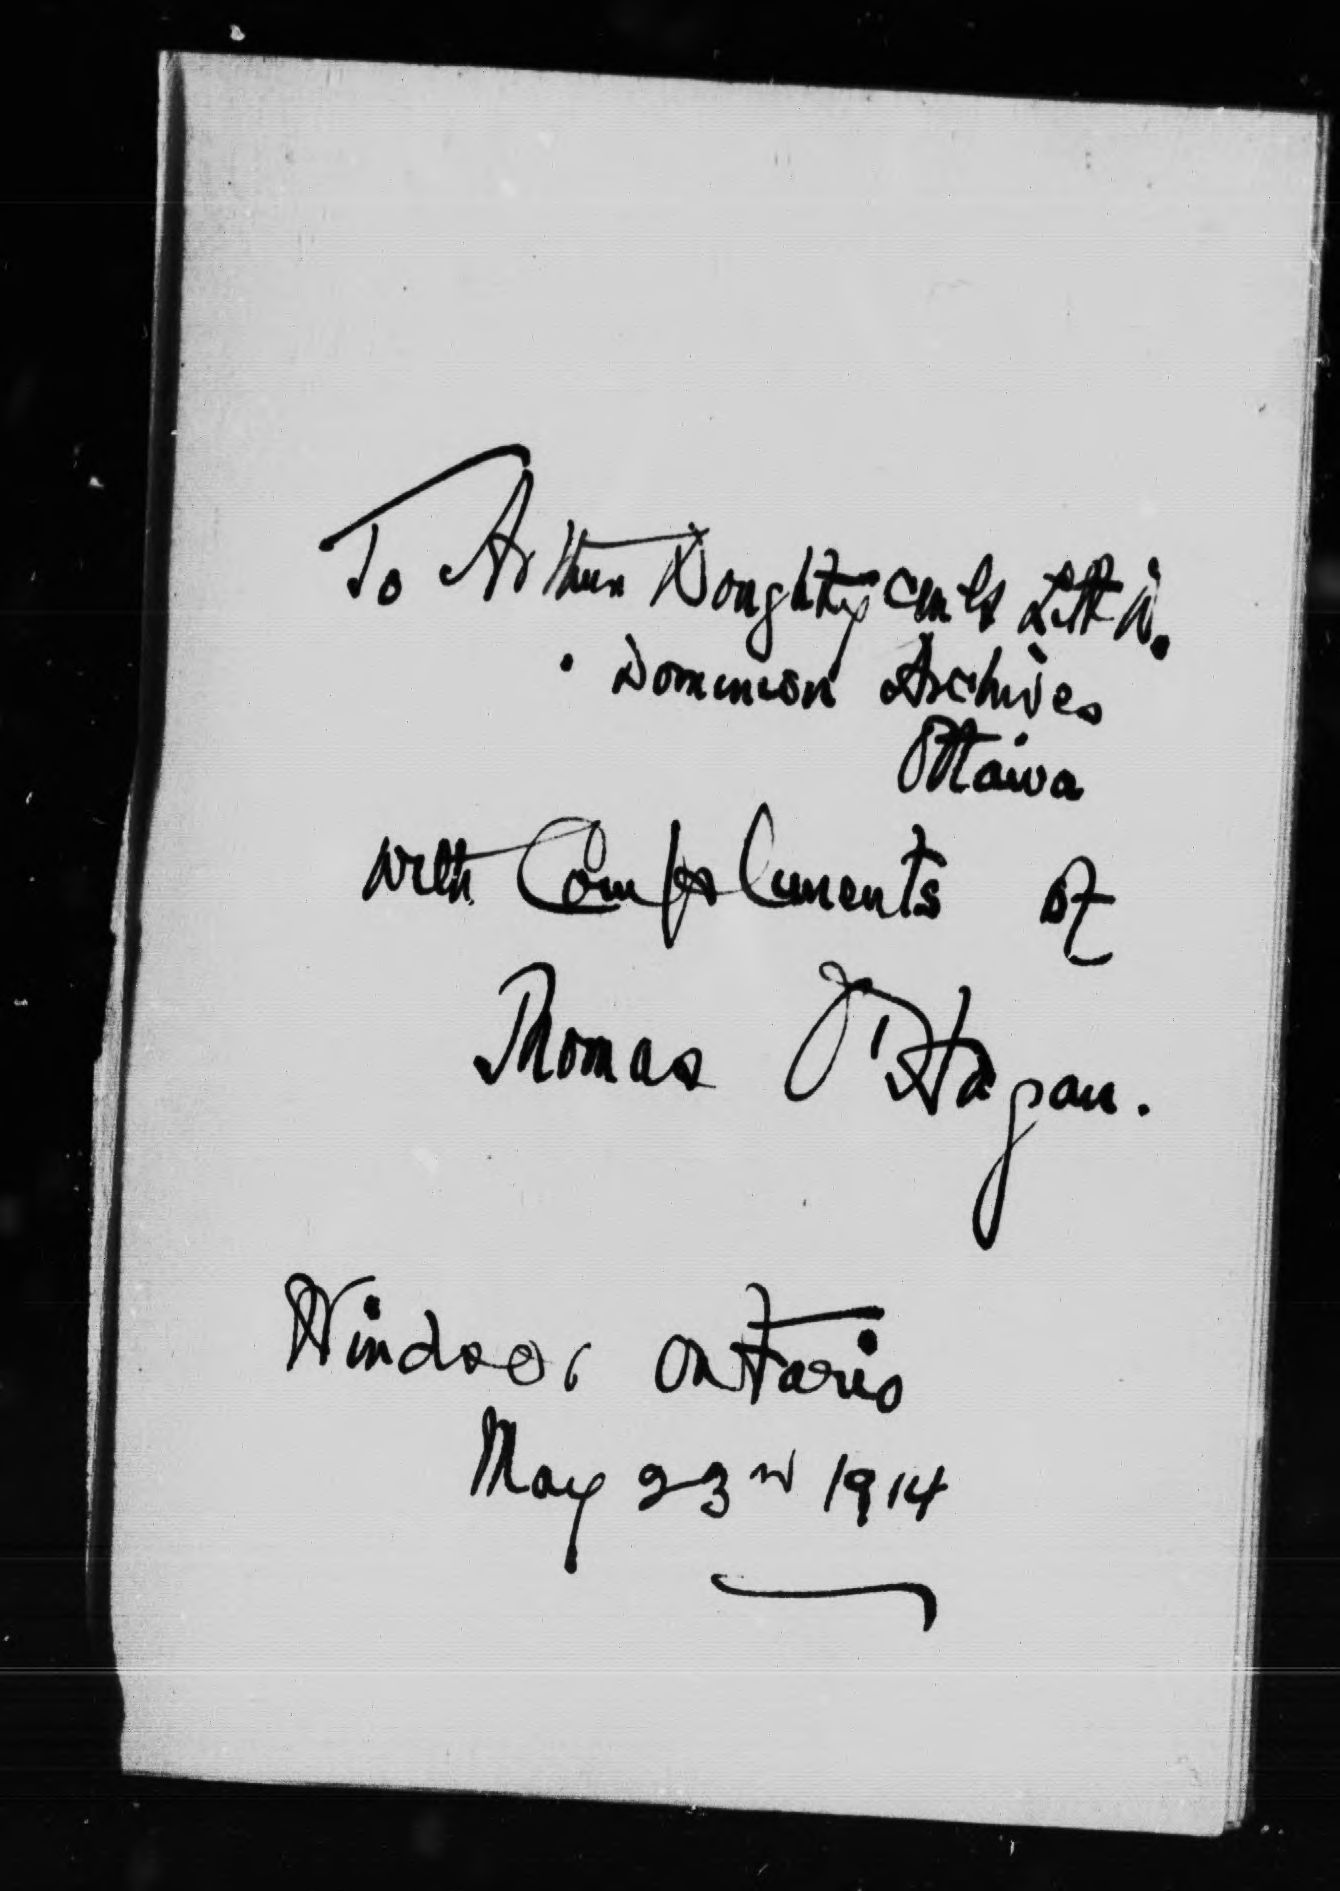 To Arthur Doughty CMG Litt D.
Dominion Archives
Ottawa
with Compliments of
Thomas O'Hagan.
Windsor Ontario
May 23rd 1914